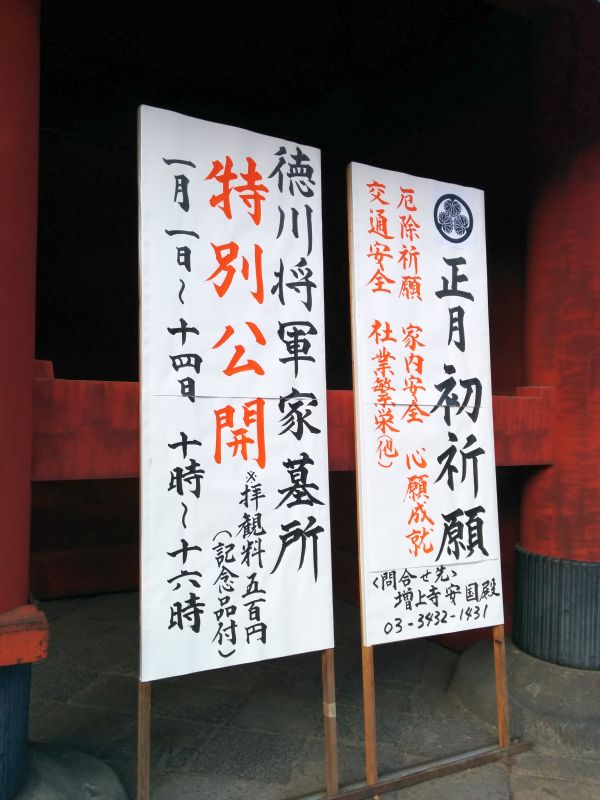 徳川将軍家墓所
特別公開
※拝観料五百円
(記念品付)
一月一日~十四日 十時~十六時
正月初祈願
厄除祈願 家内安全 心願成就
交通安全 社業繁栄(他)
<問合せ先>
増上寺安国殿
03-3432-1431